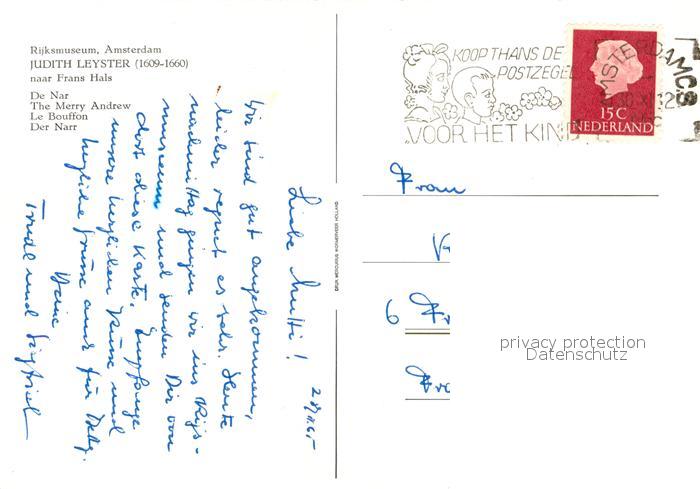 Rijksmuseum, Amsterdam
JUDITH LEYSTER (1609-1660)
naar Frans Hals
De Nar
The Merry Andrew
Le Bouffon
Der Narr
28.11.65
Liebe Mutti!
Wir sind gut angekommen,
leider regnet es sehr. Heute
nachmittag gingen wir ins Rijks-
museum und senden Dir von
dort diese Karte. Empfange
unsere herzlichen Grüsse und
herzliche Grüsse auch für
Deine
Trudl und Siegfried
DRUK MERCURIUS WORMERVEER HOLLAND
KOOP THANS DE
POSTZEGEL
VOOR HET KIND
AMSTERDAM
15C
NEDERLAND
Frau
6
privacy protection
Datenschutz